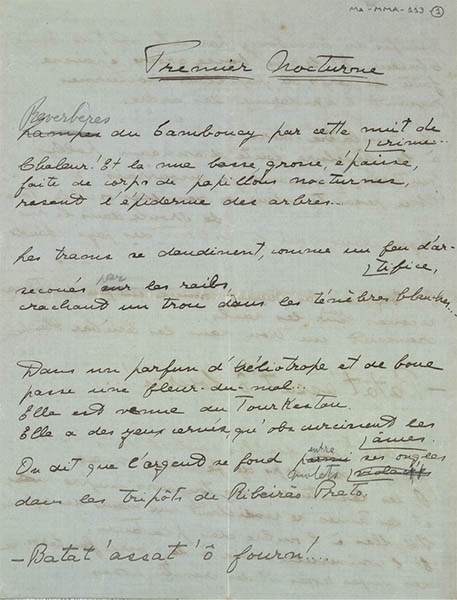 MA-MMA-113-①
Premier Nocturne
Reverbères
lampes du Camboucy par cette nuit de
crime...
Chaleur! Et la nue basse grosse épaisse,
faite de corps de papillons nocturnes,
rasant l'épiderme des arbres...
Les trams se dandinent, comme un feu d'ar-
tifice,
par
secoués sur les rails,
crachant un trou dans les ténèbres blanches...
Dans un parfum d'héliotrope et de boue
passe une fleur-du-mal...
Elle est venue du Tourkestan.
Elle a des yeux cernés, qu'obscurcissent les
âmes.
entre
On dit que l'argent se fond parmi ses ongles
violets
dans les tripôts de Ribeirão Preto.
—Batat'assat'ô fourn!...